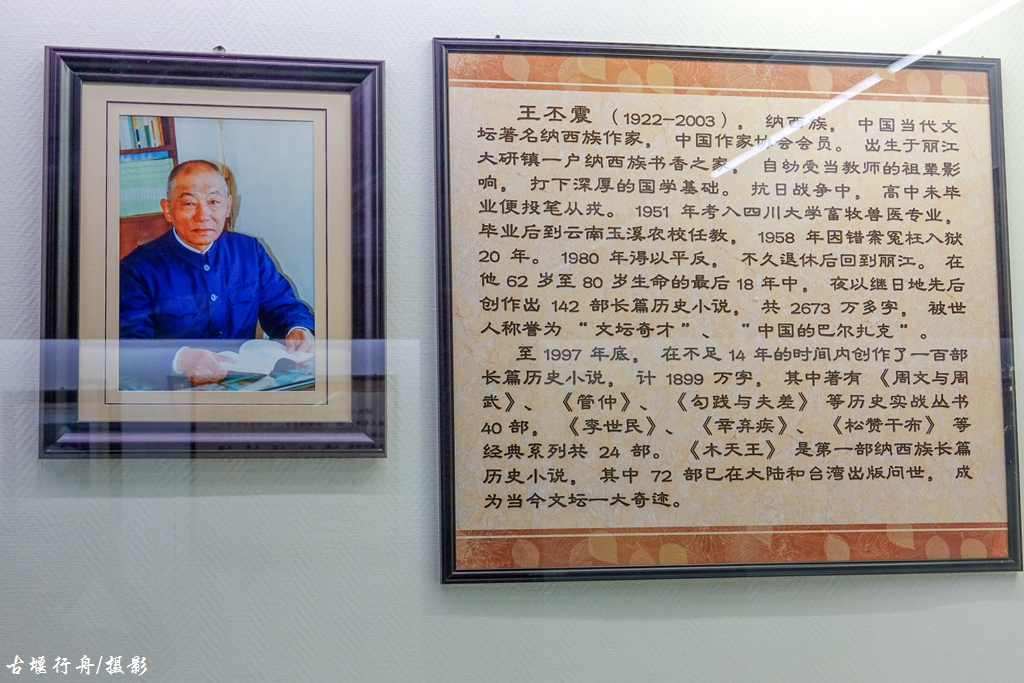 王丕震 （1922—2003），纳西族，中国当代文
坛著名纳西族作家，中国作家协会会员。出生于丽江
大研镇一户纳西族书香之家，自幼受当教师的祖辈影
响，打下深厚的国学基础。抗日战争中，高中未毕
业便投笔从戎。1951 年考入四川大学畜牧兽医专业，
毕业后到云南玉溪农校任教，1958 年因错案冤枉入狱
20 年。1980 年得以平反，不久退休后回到丽江。在
他 62 岁至 80 岁生命的最后 18 年中，夜以继日地先后
创作出 142 部长篇历史小说，共 2673 万多字，被世
人称誉为“文坛奇才”、“中国的巴尔扎克”。
至 1997 年底，在不足 14 年的时间内创作了一百部
长篇历史小说，计 1899 万字，其中著有《周文与周
武》、《管仲》、《勾践与夫差》等历史实战丛书
40 部，《李世民》、《辛弃疾》、《松赞干布》等
经典系列共 24 部。《木天王》是第一部纳西族长篇
历史小说，其中 72 部已在大陆和台湾出版问世，成
为当今文坛一大奇迹。
古堰行舟/摄影